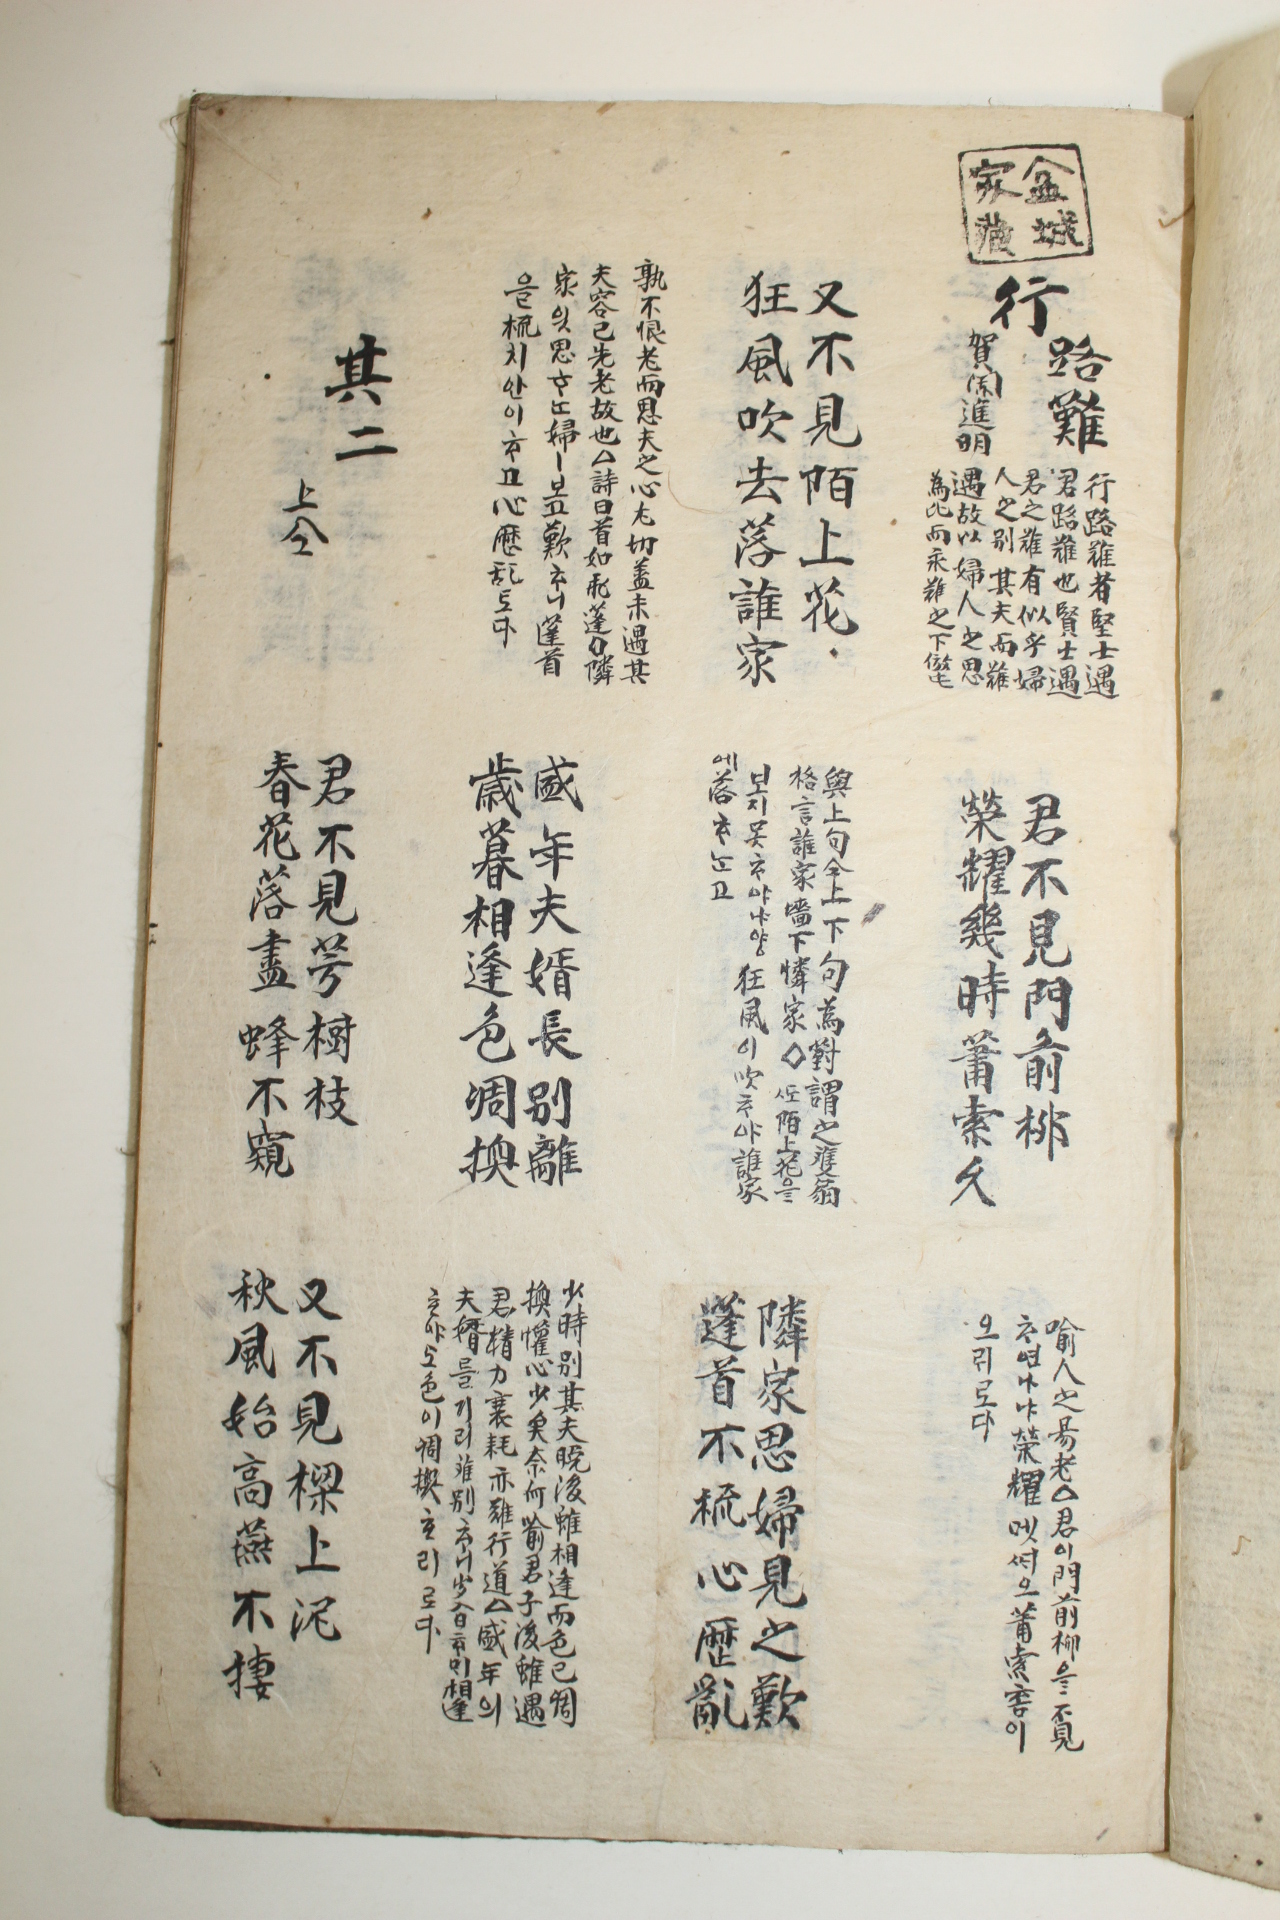 金城
家藏
行路難
賀蘭進明
行路難者堅士遇
君路難也賢士遇
君之難有似乎婦
人之別其夫而難
遇故以婦人之思
為比而永難之下
君不見門前柳
榮耀幾時蕭索久
喻人之易老△君이門前柳을不見
ᄒᆞ면나냐榮耀몃ᄯᆡ오蕭索홈이
오ᄅᆡ로다
又不見陌上花
狂風吹去落誰家
與上句合上下句為對謂之雙扇
格言誰家墻下憐家◇ᄯᅩ陌上花을
보지못ᄒᆞ야냐狂風이吹ᄒᆞ야誰家
에落ᄒᆞ눈고
隣家思婦見之歎
蓬首不梳心歷亂
孰不恨老而思夫之心尤切盖未遇其
夫容已先老故也△詩曰首如飛蓬◇隣
家잇思ᄒᆞᄂᆞᆫ婦ㅣ보고歎ᄒᆞ니蓬首
을梳치안이ᄒᆞ고心歷乱도다
盛年夫婿長別離
歲暮相逢色凋換
少時別其夫晩後雖相逢而色已凋
換懽心少矣奈何喻君子後雖遇
君精力衰耗亦難行道△盛年의
夫婿를기리離別ᄒᆞ니歲暮ᄒᆞ미相逢
ᄒᆞ야도色이凋換ᄒᆞ리로다
其二
上仝
君不見芳樹枝
春花落盡蜂不窺
又不見樑上泥
秋風始高燕不捿